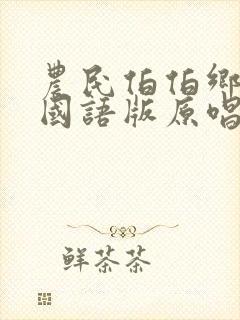 農民伯伯鄉
國語版原唱
鮮茶茶